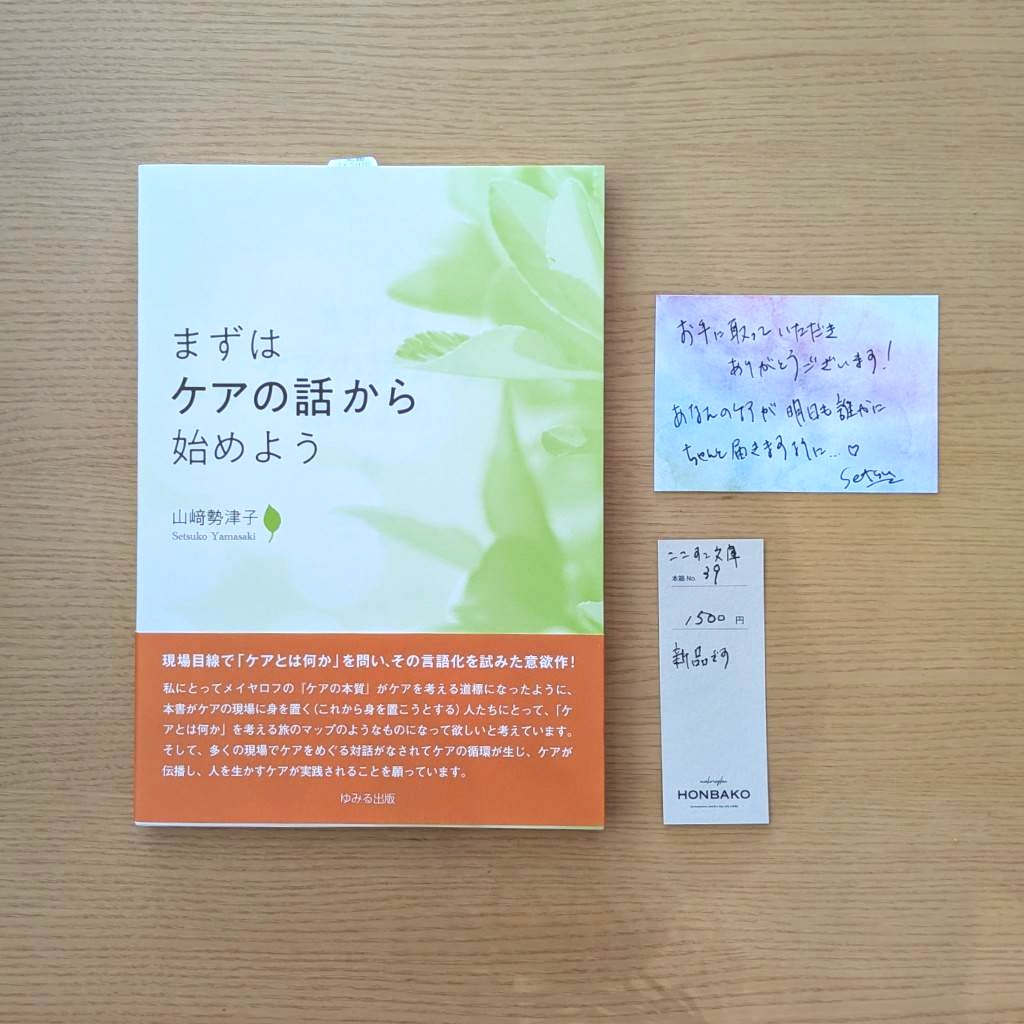 まずは
ケアの話から
始めよう
山﨑勢津子
Setsuko Yamasaki
現場目線で「ケアとは何か」を問い、その言語化を試みた意欲作！
私にとってメイヤロフの『ケアの本質』がケアを考える道標になったように、
本書がケアの現場に身を置く（これから身を置こうとする）人たちにとって、「ケ
アとは何か」を考える旅のマップのようなものになって欲しいと考えています。
そして、多くの現場でケアをめぐる対話がなされてケアの循環が生じ、ケアが
伝播し、人を生かすケアが実践されることを願っています。
ゆみる出版
お手に取っていただき
ありがとうございます！
あなたのケアが明日も誰かに
ちゃんと届きますように…♡
Setsu
ここすこ文庫
本箱 No. 39
1500 円
新品です
HONBAKO